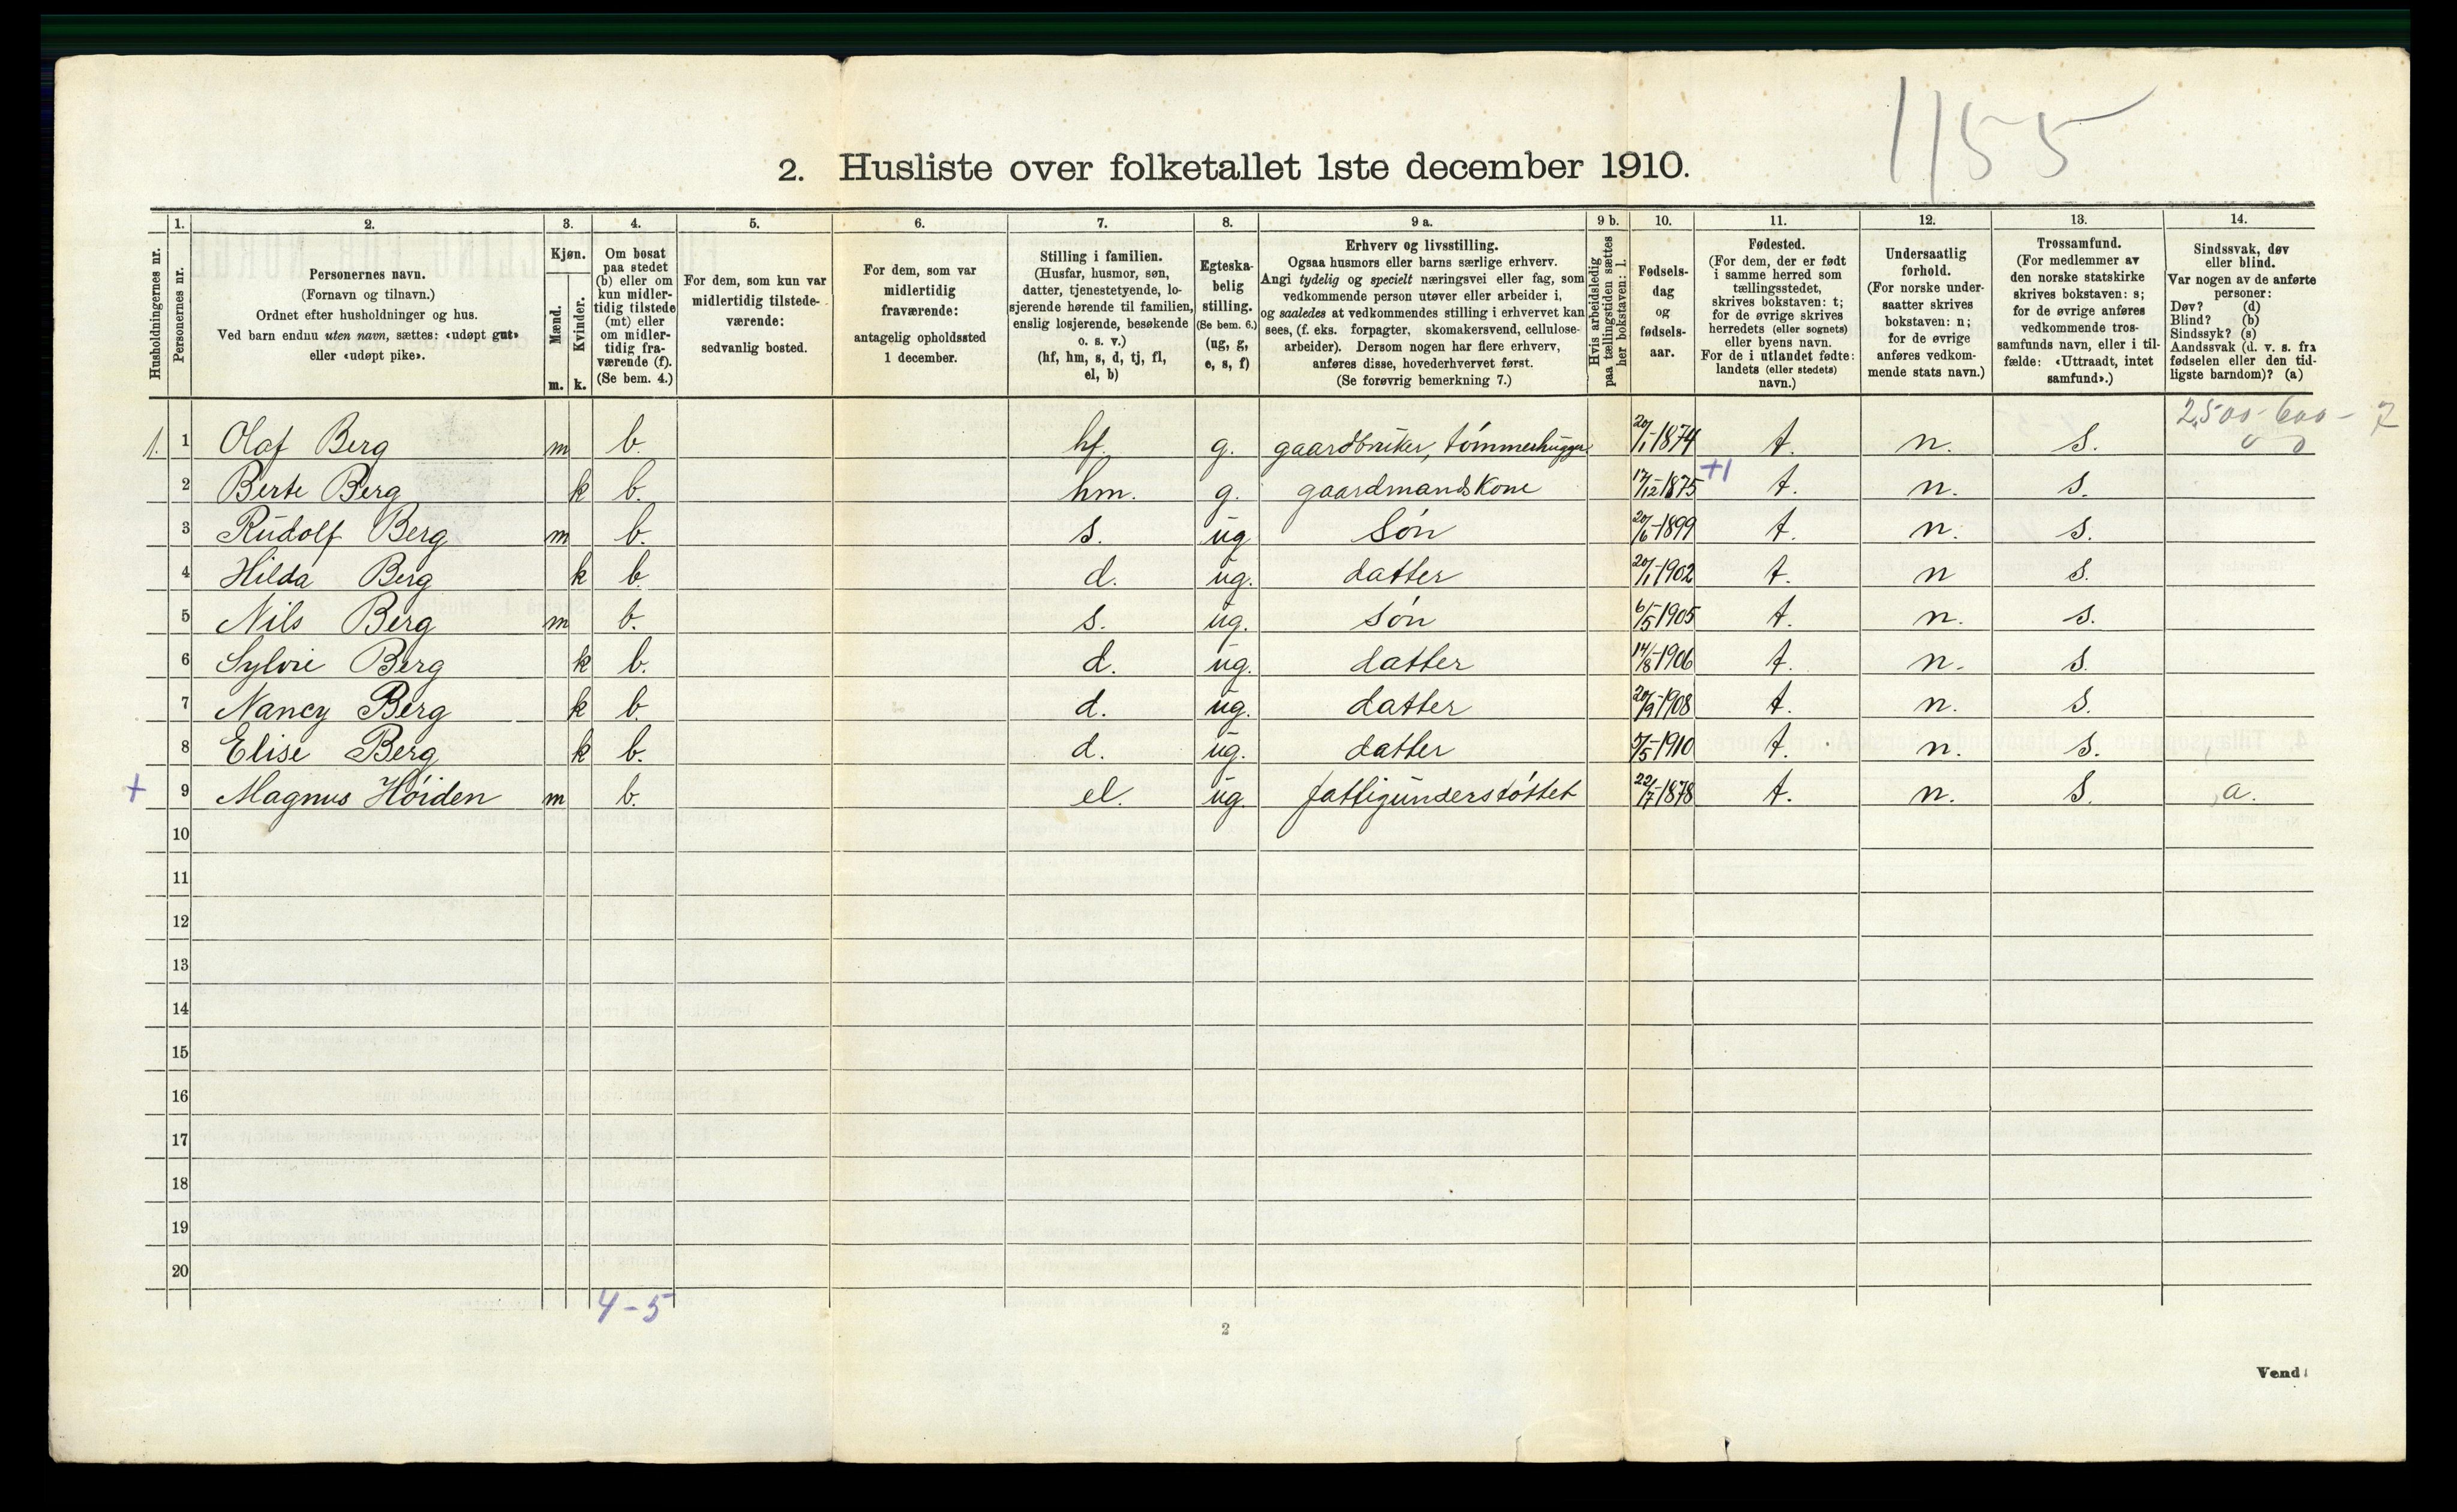 1155
2. Husliste over folketallet 1ste december 1910.
Husholdningernes nr.
1. Personernes nr.
2. Personernes navn.
(Fornavn og tilnavn.)
Ordnet efter husholdninger og hus.
Ved barn endnu uten navn, sættes: «udøpt gut»
eller «udøpt pike».
3. Kjøn.
Mænd. m.
Kvinder. k.
4. Om bosat
paa stedet
(b) eller om
kun midler-
tidig tilstede
(mt) eller
om midler-
tidig fra-
værende (f).
(Se bem. 4.)
5. For dem, som kun var
midlertidig tilstede-
værende:
sedvanlig bosted.
6. For dem, som var
midlertidig
fraværende:
antagelig opholdssted
1 december.
7. Stilling i familien.
(Husfar, husmor, søn,
datter, tjenestetyende, lo-
sjerende hørende til familien,
enslig losjerende, besøkende
o. s. v.)
(hf, hm, s, d, tj, fl,
el, b)
8. Egteska-
belig
stilling.
(Se bem. 6.)
(ug, g,
e, s, f)
9 a. Erhverv og livsstilling.
Ogsaa husmors eller barns særlige erhverv.
Angi tydelig og specielt næringsvei eller fag, som
vedkommende person utøver eller arbeider i,
og saaledes at vedkommendes stilling i erhvervet kan
sees, (f. eks. forpagter, skomakersvend, cellulose-
arbeider). Dersom nogen har flere erhverv,
anføres disse, hovederhvervet først.
(Se forøvrig bemerkning 7.)
9 b. Hvis arbeidsledig
paa tællingstiden sættes
her bokstaven: l.
10. Fødsels-
dag
og
fødsels-
aar.
11. Fødested.
(For dem, der er født
i samme herred som
tællingsstedet,
skrives bokstaven: t;
for de øvrige skrives
herredets (eller sognets)
eller byens navn.
For de i utlandet fødte:
landets (eller stedets)
navn.)
12. Undersaatlig
forhold.
(For norske under-
saatter skrives
bokstaven: n;
for de øvrige
anføres vedkom-
mende stats navn.)
13. Trossamfund.
(For medlemmer av
den norske statskirke
skrives bokstaven: s;
for de øvrige anføres
vedkommende tros-
samfunds navn, eller i til-
fælde: «Uttraadt, intet
samfund».)
14. Sindssvak, døv
eller blind.
Var nogen av de anførte
personer:
Døv? (d)
Blind? (b)
Sindssyk? (s)
Aandssvak (d. v. s. fra
fødselen eller den tid-
ligste barndom)? (a)
2,500-600- 7
0 0
1. 1 Olaf Berg m b. hf. g. gaardbruker, tømmerhugger 20/1-1874 t. n. s.
+1
2 Berte Berg k b. hm. g. gaardmandskone 17/12-1875 t. n. s.
3 Rudolf Berg m b. s. ug søn 20/6-1899 t. n. s.
4 Hilda Berg k b d. ug. datter 20/1-1902 t. n s.
5 Nils Berg m b. s. ug. søn 6/5-1905 t. n. s.
6 Sylvie Berg k b. d. ug. datter 14/8-1906 t. n. s.
7 Nancy Berg k b. d. ug. datter 20/9-1908 t. n. s.
8 Elise Berg k b. d. ug. datter 5/5-1910 t. n. s.
+ 9 Magnus Höiden m b. el. ug. fattigunderstøttet 22/7-1878 t. n. s. a.
10
11
12
13
14
15
16
17
18
19
20
4-5
2
Vend!